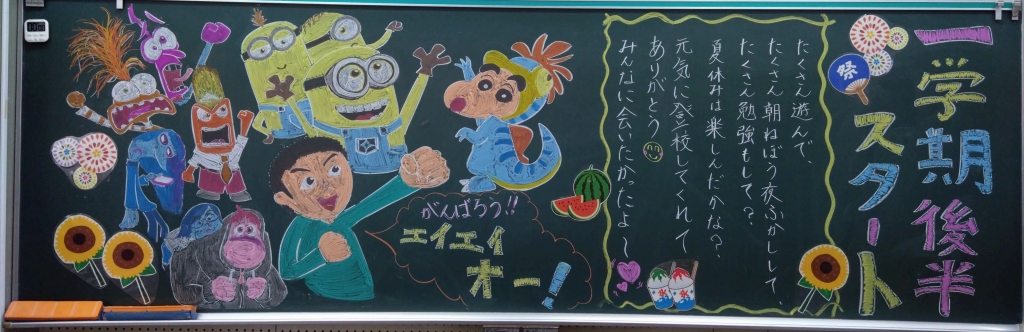 一学期後半
スタート
祭
たくさん遊んで、
たくさん朝ねぼう夜ふかしして、
たくさん勉強もして？
夏休みは楽しんだかな？
元気に登校してくれて
ありがとう
みんなに会いたかったよ〜
氷
氷
がんばろう!!
エイエイ
オー!